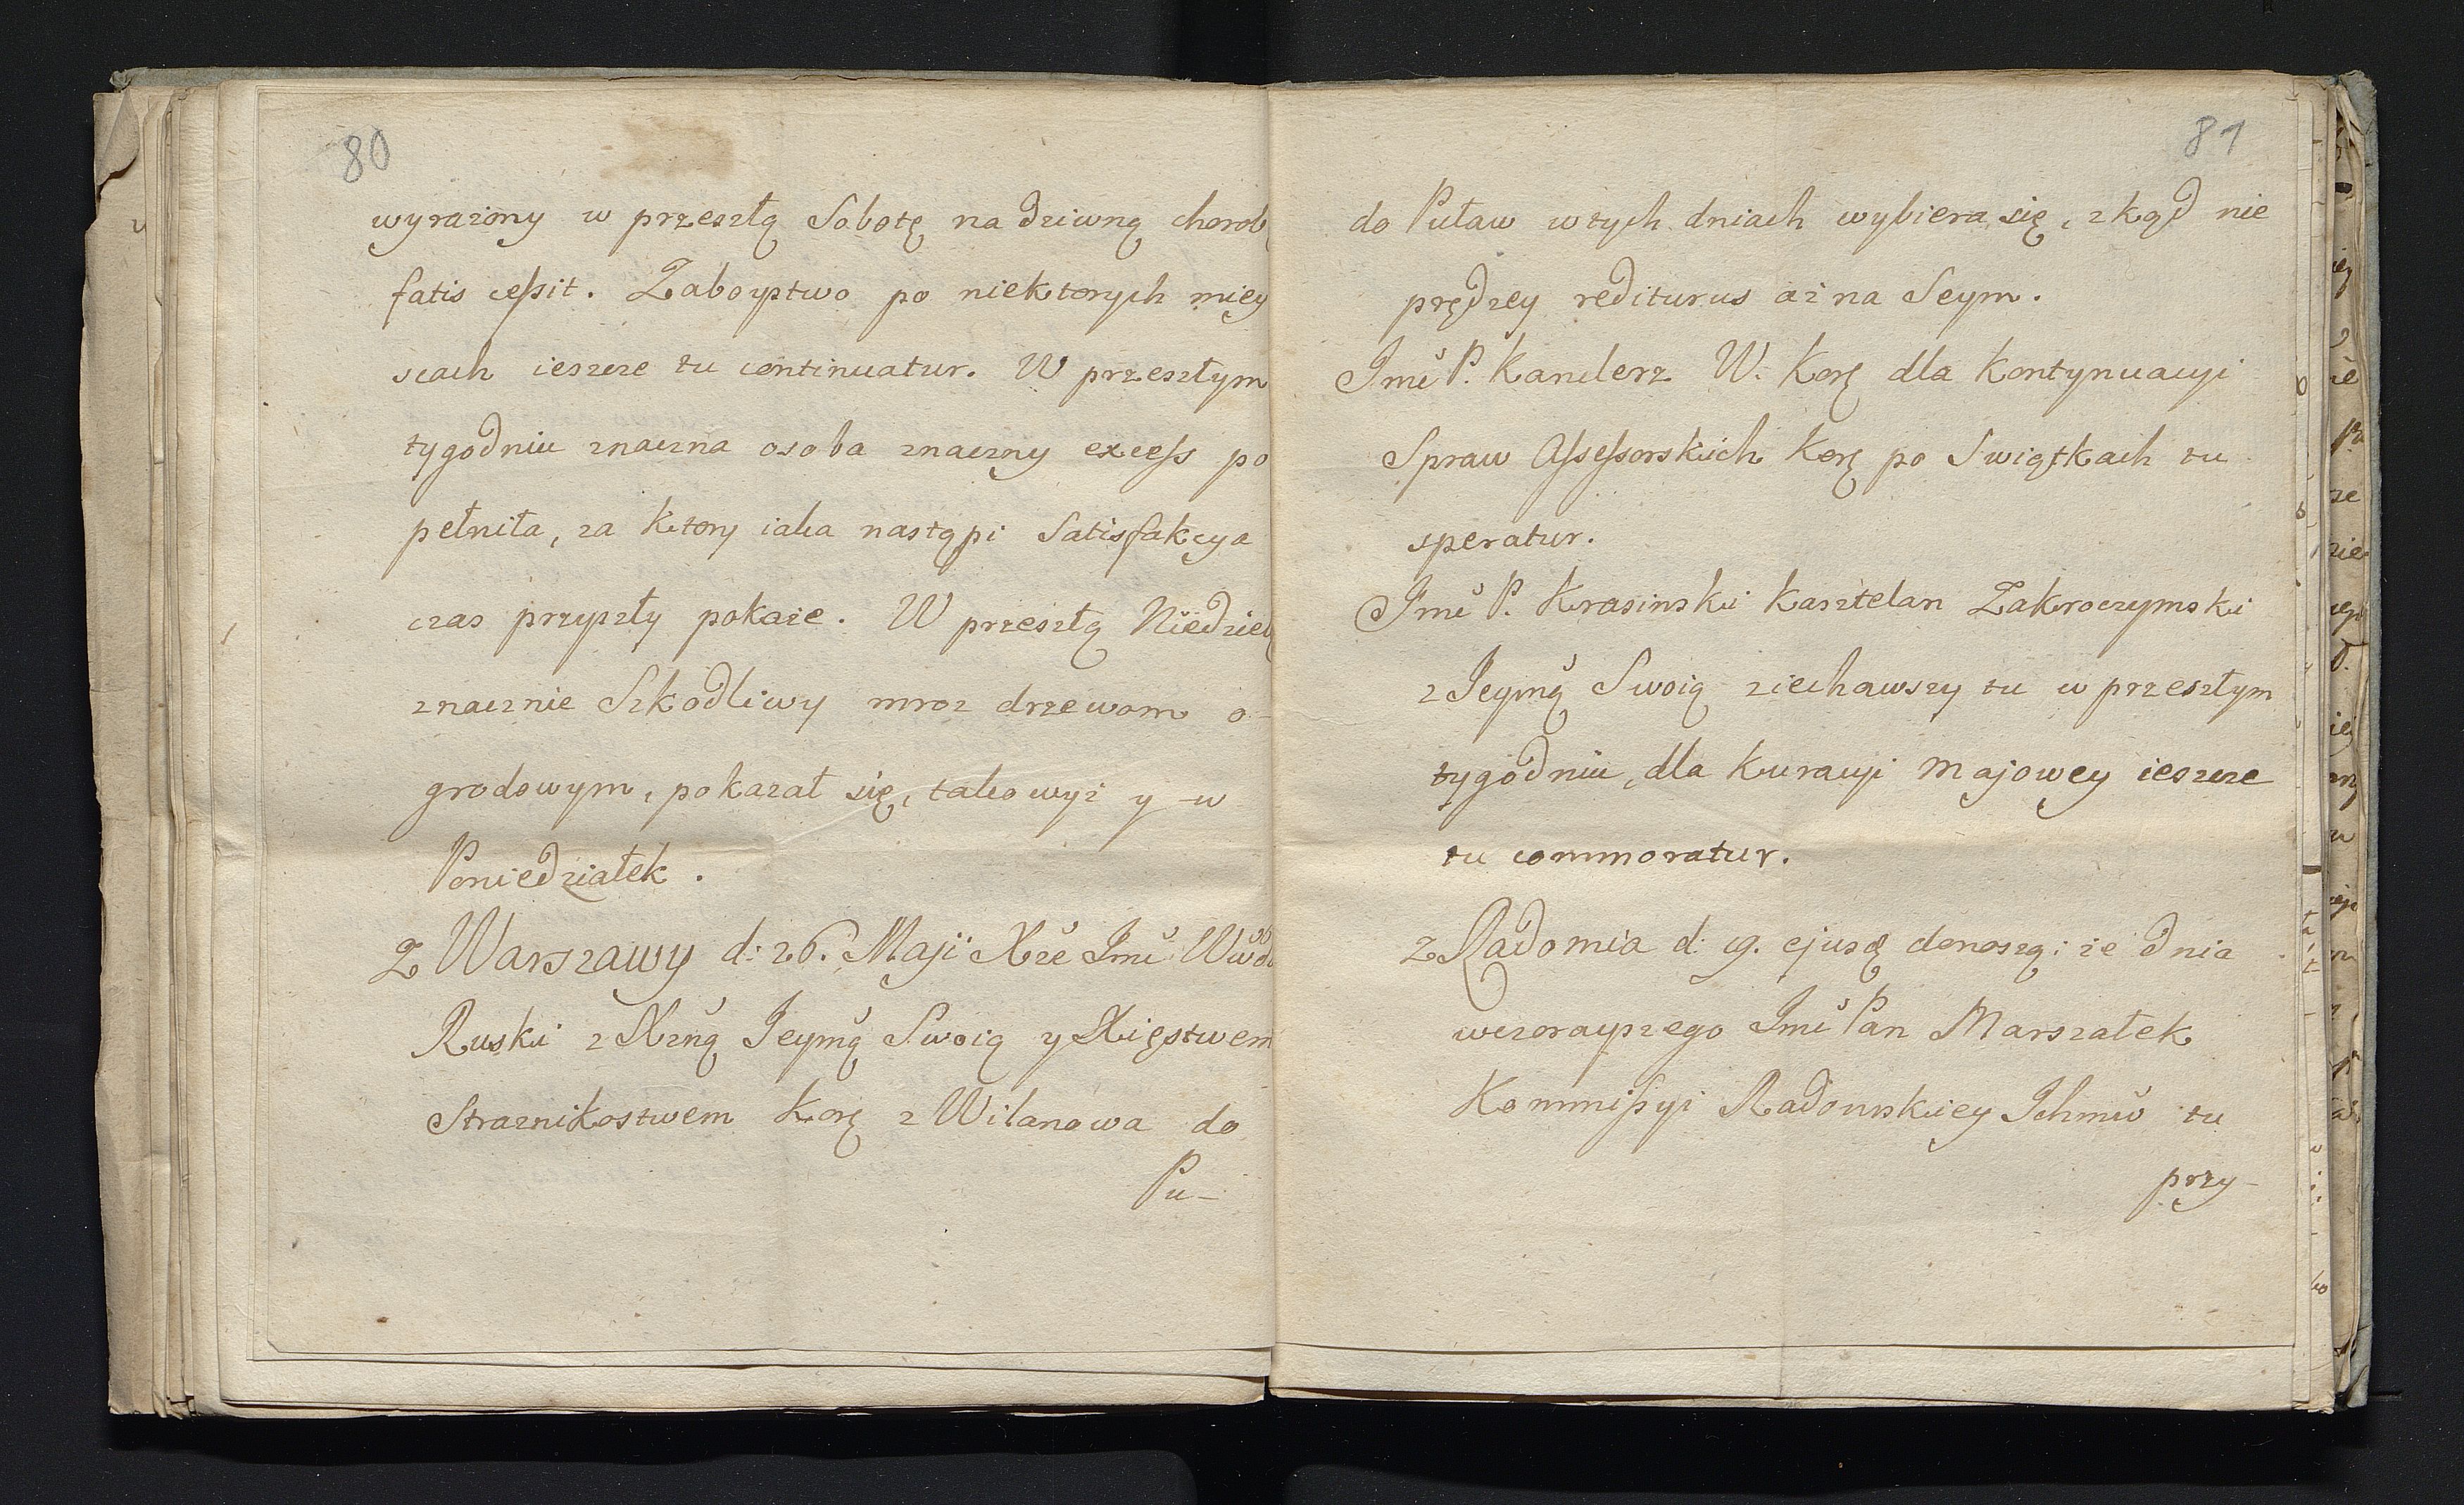 80
wyrażony w przeszłą Sobotę na dziwną chorob
fatis ceſsit. Zaboystwo po niektorych miey
scach ieszcze tu continuatur. W przeszłym
tygodniu znaczna osoba znaczny exceſs po
pełniła, za ktory iaka nastąpi Satisfakcya
czas przyszły pokaże. W przeszłą Niedziel
znacznie Szkodliwy mroz drzewom o-
grodowym, pokazał się, takowyż y w
Poniedziałek.
Z Warszawy d: 26. Maji Xże Jmć Wwda
Ruski z Xżną Jeymą Swoią y Xięstwem
Strażnikostwem Korę z Wilanowa do
Pu-
81
do Puław w tych dniach wybiera się, zkąd nie
prędzey rediturus aż na Seym.
Jmć P. Kanclerz W. Korę dla Kontynuacyi
Spraw Aſseſsorskich Korę po Swiątkach tu
speratur.
Jmć P. Krasinski Kasztelan Zakroczymski
z Jeymą Swoią ziechawszy tu w przeszłym
tygodniu, dla Kuracyi Majowey ieszcze
tu commoratur.
z Radomia d: 19. ejusdę donoszą: że dnia
wczorayszego Jmć Pan Marszałek
Kommiſsyi Radomskiey Ichmćw tu
przy-